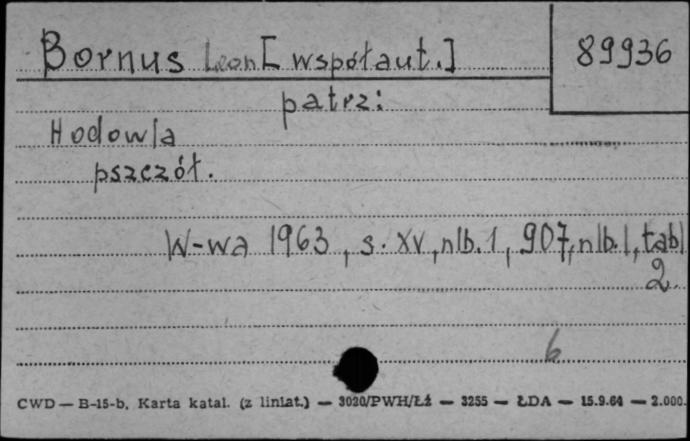 Bornus Leon [współaut.] 89936
patrz:
Hodowla
pszczół.
W-wa 1963, s. XV, nlb. 1, 907, nlb. 1, tabl
2.
6
CWD — B-15-b. Karta katal. (z liniat.) — 3020/PWH/Łź — 3255 — ŁDA — 15.9.64 — 2.000.